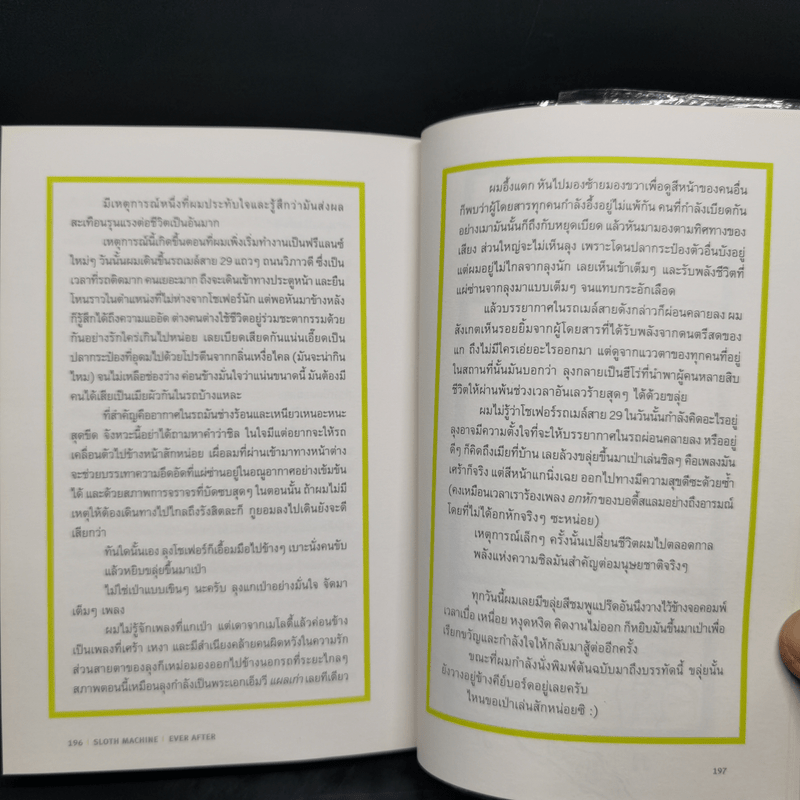 มีเหตุการณ์หนึ่งที่ผมประทับใจและรู้สึกว่ามันส่งผล
สะเทือนรุนแรงต่อชีวิตเป็นอันมาก
เหตุการณ์นี้เกิดขึ้นตอนที่ผมเพิ่งเริ่มทำงานเป็นฟรีแลนซ์
ใหม่ๆ วันนั้นผมเดินขึ้นรถเมล์สาย 29 แถวๆ ถนนวิภาวดี ซึ่งเป็น
เวลาที่รถติดมาก คนเยอะมาก ถึงจะเดินเข้าทางประตูหน้า และยืน
โหนราวในตำแหน่งที่ไม่ห่างจากโชเฟอร์นัก แต่พอหันมาข้างหลัง
ก็รู้สึกได้ถึงความแออัด ต่างคนต่างใช้ชีวิตอยู่ร่วมชะตากรรมด้วย
กันอย่างรักใคร่เกินไปหน่อย เลยเบียดเสียดกันแน่นเอี๊ยดเป็น
ปลากระป๋องที่อุดมไปด้วยโปรตีนจากกลิ่นเหงื่อไคล (มันจะน่ากิน
ไหม) จนไม่เหลือช่องว่าง ค่อนข้างมั่นใจว่าแน่นขนาดนี้ มันต้องมี
คนได้เสียเป็นเมียผัวกันในรถบ้างแหละ
ที่สำคัญคืออากาศในรถมันช่างร้อนและเหนียวเหนอะหนะ
สุดขีด จังหวะนี้อย่าได้ถามหาคำว่าชิล ในใจมีแต่อยากจะให้รถ
เคลื่อนตัวไปข้างหน้าสักหน่อย เผื่อลมที่ผ่านเข้ามาทางหน้าต่าง
จะช่วยบรรเทาความอึดอัดที่แผ่ซ่านอยู่ในอณูอากาศอย่างเข้มข้น
ได้ และด้วยสภาพการจราจรที่บัดซบสุดๆ ในตอนนั้น ถ้าผมไม่มี
เหตุให้ต้องเดินทางไปไกลถึงรังสิตละก็ กูยอมลงไปเดินยังจะดี
เสียกว่า
ทันใดนั้นเอง ลุงโชเฟอร์ก็เอื้อมมือไปข้างๆ เบาะนั่งคนขับ
แล้วหยิบขลุ่ยขึ้นมาเป่า
ไม่ใช่เป่าแบบเขินๆ นะครับ ลุงแกเป่าอย่างมั่นใจ จัดมา
เต็มๆ เพลง
ผมไม่รู้จักเพลงที่แกเป่า แต่เดาจากเมโลดี้แล้วค่อนข้าง
เป็นเพลงที่เศร้า เหงา และมีสำเนียงคล้ายคนผิดหวังในความรัก
ส่วนสายตาของลุงก็เหม่อมองออกไปข้างนอกรถที่ระยะไกลๆ
สภาพตอนนี้เหมือนลุงกำลังเป็นพระเอกเอ็มวี แผลเก่า เลยทีเดียว
196 : SLOTH MACHINE : EVER AFTER
ผมอึ้งแดก หันไปมองซ้ายมองขวาเพื่อดูสีหน้าของคนอื่น
ก็พบว่าผู้โดยสารทุกคนกำลังอึ้งอยู่ไม่แพ้กัน คนที่กำลังเบียดกัน
อย่างเมามันนั้นก็ถึงกับหยุดเบียด แล้วหันมามองตามทิศทางของ
เสียง ส่วนใหญ่จะไม่เห็นลุง เพราะโดนปลากระป๋องตัวอื่นบังอยู่
แต่ผมอยู่ไม่ไกลจากลุงนัก เลยเห็นเข้าเต็มๆ และรับพลังชีวิตที่
แผ่ซ่านจากลุงมาแบบเต็มๆ จนแทบกระอักเลือด
แล้วบรรยากาศในรถเมล์สายดังกล่าวก็ผ่อนคลายลง ผม
สังเกตเห็นรอยยิ้มจากผู้โดยสารที่ได้รับพลังจากดนตรีสดของ
แก ถึงไม่มีใครเอ่ยอะไรออกมา แต่ดูจากแววตาของทุกคนที่อยู่
ในสถานที่นั้นมันบอกว่า ลุงกลายเป็นฮีโร่ที่นำพาผู้คนหลายสิบ
ชีวิตให้ผ่านพ้นช่วงเวลาอันเลวร้ายสุดๆ ได้ด้วยขลุ่ย
ผมไม่รู้ว่าโชเฟอร์รถเมล์สาย 29 ในวันนั้นกำลังคิดอะไรอยู่
ลุงอาจมีความตั้งใจที่จะให้บรรยากาศในรถผ่อนคลายลง หรืออยู่
ดีๆ ก็คิดถึงเมียที่บ้าน เลยล้วงขลุ่ยขึ้นมาเป่าเล่นชิลๆ คือเพลงมัน
เศร้าก็จริง แต่สีหน้าแกนิ่งเฉย ออกไปทางมีความสุขดีซะด้วยซ้ำ
(คงเหมือนเวลาเราร้องเพลง อกหัก ของบอดี้สแลมอย่างถึงอารมณ์
โดยที่ไม่ได้อกหักจริงๆ ซะหน่อย)
เหตุการณ์เล็กๆ ครั้งนั้นเปลี่ยนชีวิตผมไปตลอดกาล
พลังแห่งความชิลมันสำคัญต่อมนุษยชาติจริงๆ
ทุกวันนี้ผมเลยมีขลุ่ยสีชมพูแปร๊ดอันนึงวางไว้ข้างจอคอมพ์
เวลาเบื่อ เหนื่อย หงุดหงิด คิดงานไม่ออก ก็หยิบมันขึ้นมาเป่าเพื่อ
เรียกขวัญและกำลังใจให้กลับมาสู้ต่ออีกครั้ง
ขณะที่ผมกำลังนั่งพิมพ์ต้นฉบับมาถึงบรรทัดนี้ ขลุ่ยนั้น
ยังวางอยู่ข้างคีย์บอร์ดอยู่เลยครับ
ไหนขอเป่าเล่นสักหน่อยซิ :)
197